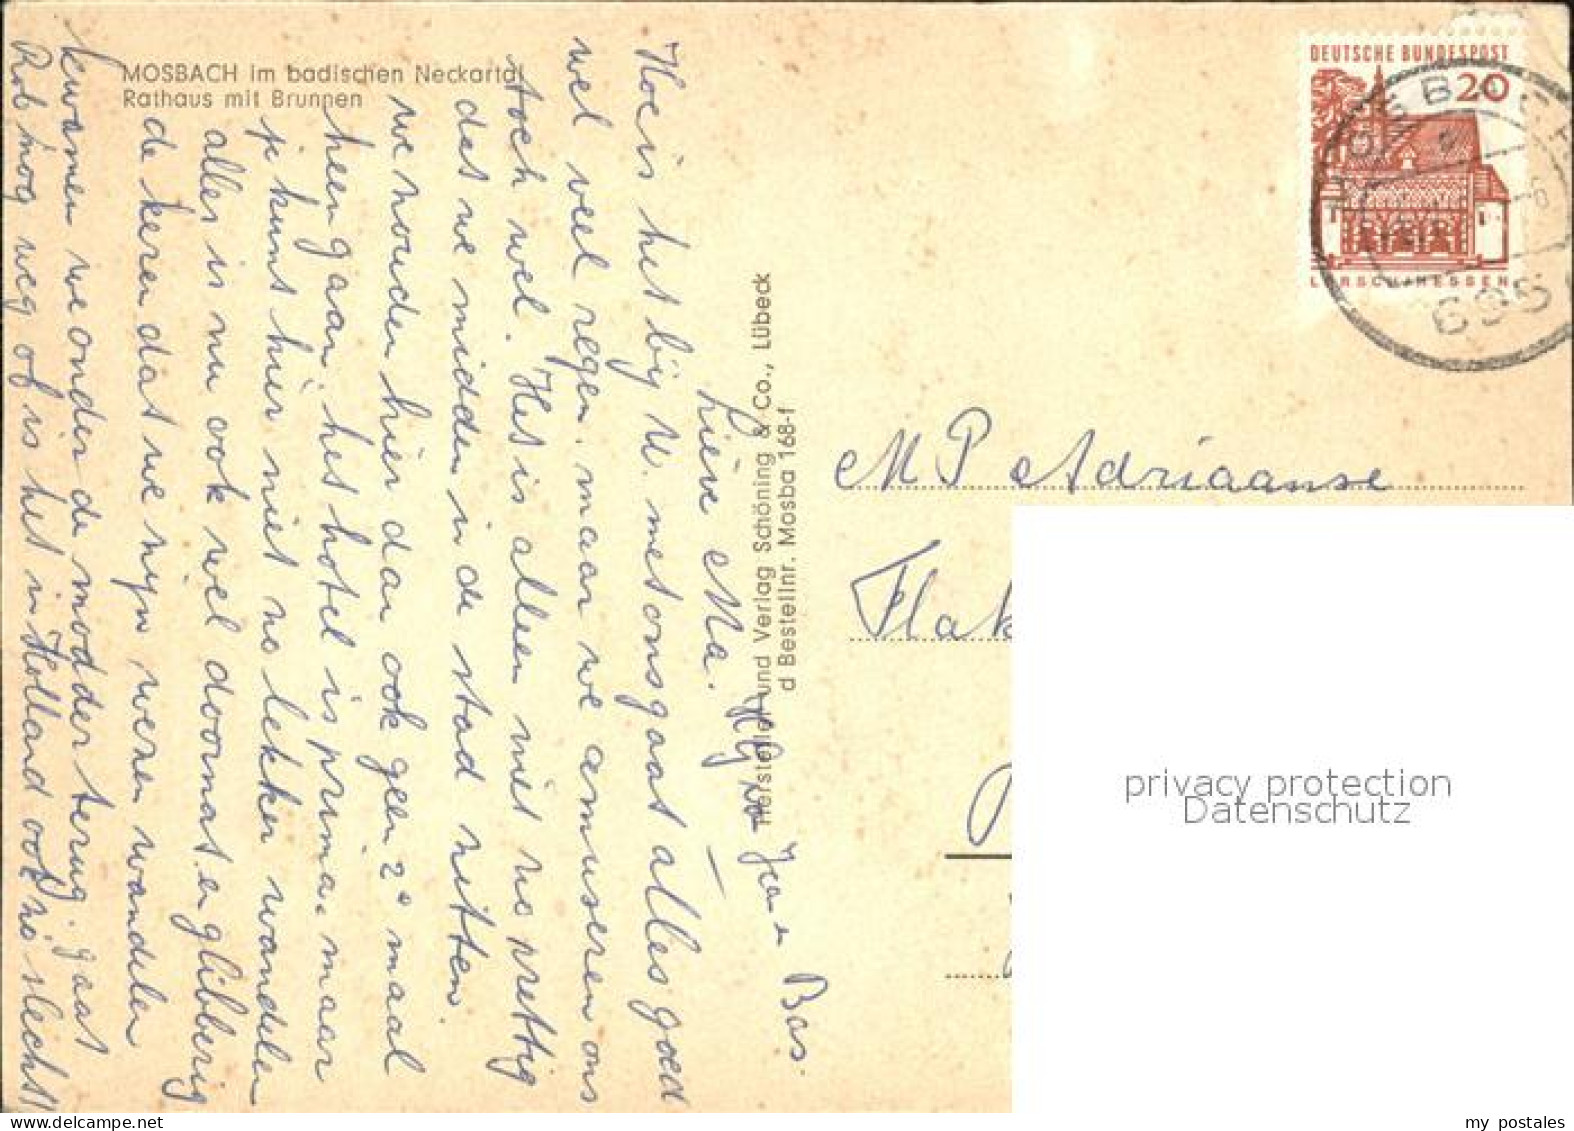 MOSBACH im badischen Neckartal
Rathaus mit Brunnen
DEUTSCHE BUNDESPOST
20
LORSCH/HESSEN
MOSBACH
695
Hersteller und Verlag Schöning & Co., Lübeck
d Bestellnr. Mosba 168-f
Lieve Ma.
Hoe is het bij U. met ons gaat alles goed
wel veel regen. maar we amuseren ons
toch wel. Het is alleen niet zo prettig
dat we midden in de stad zitten.
we houden hier dan ook geen 2e maal
heen gaan. het hotel is prima. maar
je kunt hier niet zo lekker wandelen
alles is nu ook veel doornat. en glibberig
de keren dat we zijn wezen wandelen
kwamen we onder de modder terug. gaat
Rob nog weg of is het in Holland ook zo slecht!!
Jea en Bas.
M P Adriaanse
Flak
privacy protection
Datenschutz
my postales